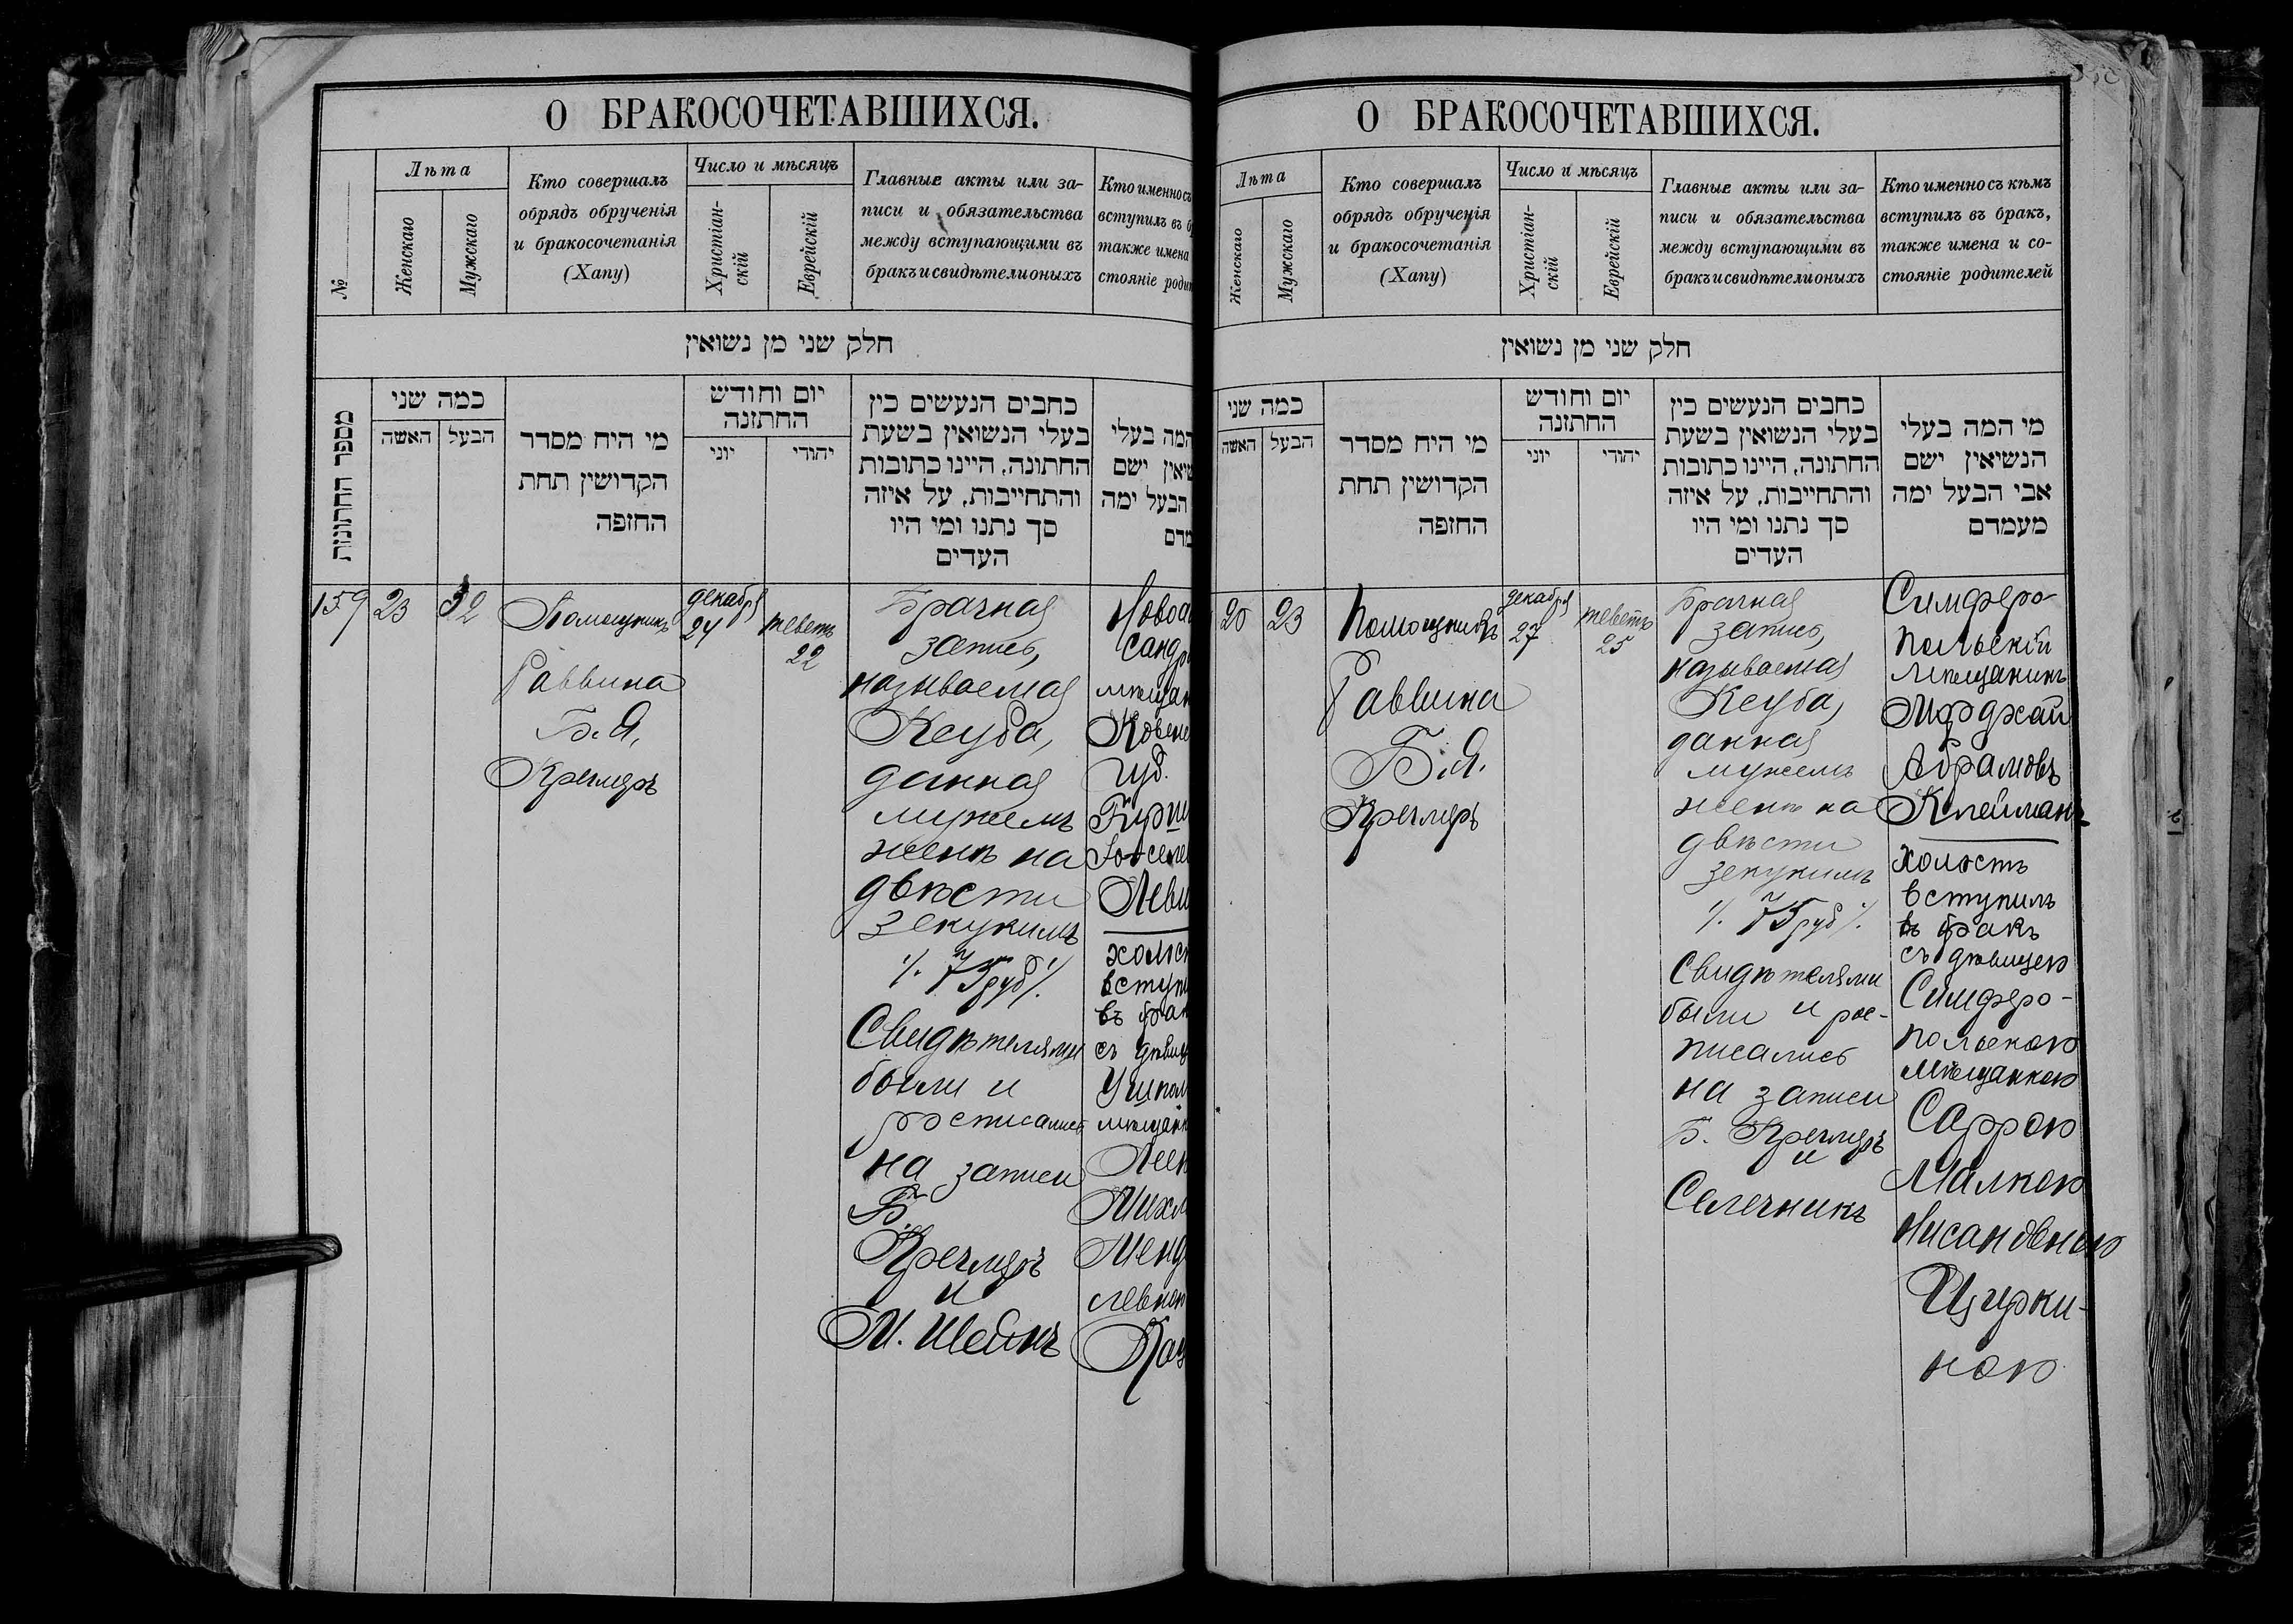 О БРАКОСОЧЕТАВШИХСЯ.
№
Лѣта
Женскаго
Мужскаго
Кто совершалъ
обрядъ обрученія
и бракосочетанія
(Хапу)
Число и мѣсяцъ
Христіан-
скій
Еврейскій
Главные акты или за-
писи и обязательства
между вступающими въ
бракъ и свидѣтели оныхъ
Кто именно съ
вступилъ въ б
также имена
стояніе роди
חלק שני מן נשואין
מספר החתונות
כמה שני
האשה
הבעל
מי היח מסדר
הקדושין תחת
החופה
יום וחודש
החתונה
יוני
יהודי
כחבים הנעשים כין
בעלי הנשואין בשעת
החתונה, היינו כתובות
והתחייבות, על איזה
סך נתנו ומי היו
העדים
המה בעלי
שיאין ישם
הבעל ימה
מדם
159
23
32
Помощникъ
Раввина
Б. Я.
Кречмеръ
декабря
24
теветъ
22
Брачная
запись,
называемая
Ксуба,
данная
мужемъ
женѣ на
двѣсти
зекукимъ
./. 75 руб ./.
Свидѣтелями
были и
росписались
на записи
Б.
Кречмеръ
и
М. Шейнъ
Новоа
сандр
мѣщан
Ковен
губ.
Гирш
Леви
холос
вступи
въ бра
съ дѣви
Ушпол
мѣщанк
Леен
Михл
Менд
левно
Кац
О БРАКОСОЧЕТАВШИХСЯ.
Лѣта
Женскаго
Мужскаго
Кто совершалъ
обрядъ обрученія
и бракосочетанія
(Хапу)
Число и мѣсяцъ
Христіан-
скій
Еврейскій
Главные акты или за-
писи и обязательства
между вступающими въ
бракъ и свидѣтели оныхъ
Кто именно съ кѣмъ
вступилъ въ бракъ,
также имена и со-
стояніе родителей
חלק שני מן נשואין
כמה שני
האשה
הבעל
מי היח מסדר
הקדושין תחת
החופה
יום וחודש
החתונה
יוני
יהודי
כחבים הנעשים כין
בעלי הנשואין בשעת
החתונה, היינו כתובות
והתחייבות, על איזה
סך נתנו ומי היו
העדים
מי המה בעלי
הנשיאין ישם
אבי הבעל ימה
מעמדם
20
23
Помощникъ
Раввина
Б. Я.
Кречмеръ
декабря
27
теветъ
25
Брачная
запись,
называемая
Ксуба,
данная
мужемъ
женѣ на
двѣсти
зекукимъ
./. 75 руб ./.
Свидѣтелями
были и рос-
писались
на записи
Б. Кречмеръ
и
Селечникъ
Симферо-
польскій
мѣщанинъ
Мордхай
Абрамовъ
Клейманъ
холостъ
вступилъ
въ бракъ
съ дѣвицею
Симферо-
польскою
мѣщанкою
Саррою
Малкою
Нисановною
Цирки-
ною